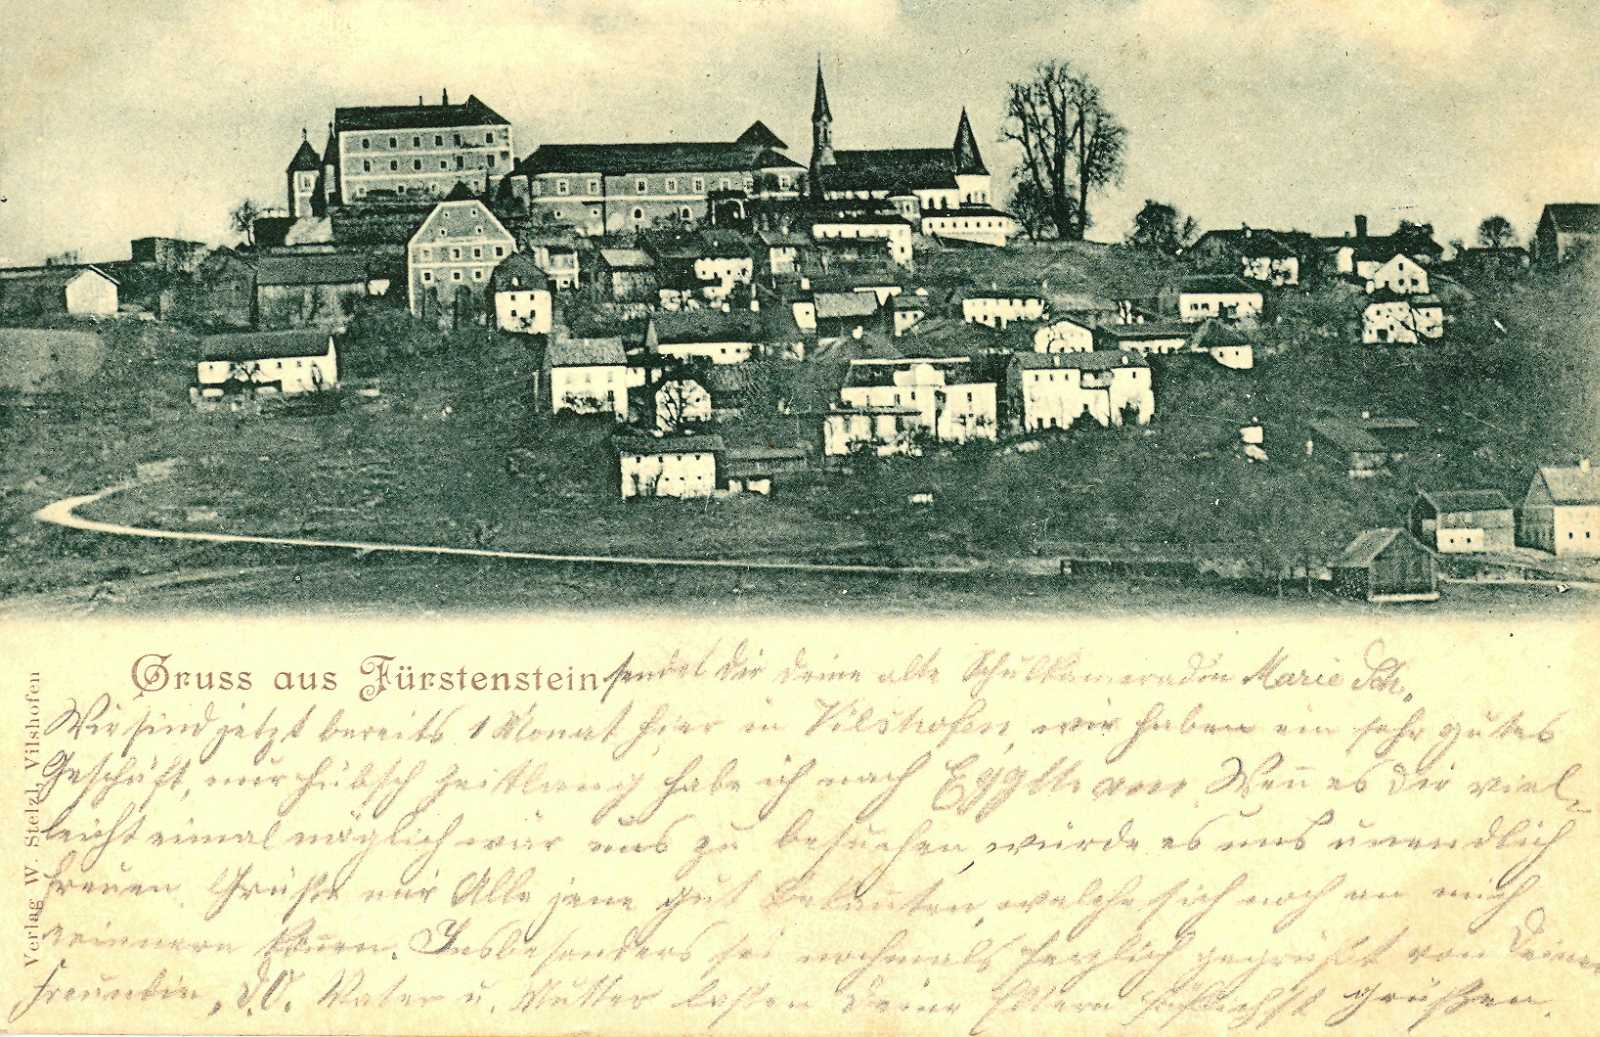 Gruss aus Fürstenstein sendet dir deine alte Schulkameradin Marie Sch.
Wir sind jetzt bereits 1 Monat hier in Vilshofen, wir haben ein sehr gutes
Geschäft, nur hübsch Zeitlang habe ich nach Wen̄ es dir viel-
leicht einmal möglich wär uns zu besuchen, würde es uns unendlich
freuen. Grüße mir Alle jene gut Bekan̄ten, welche sich noch an mich
erinnern kön̄en. Insbesonders sei nochmals herzlich gegrüßt von Deiner
Freundin, d.O. Vater u. Mutter lassen Deine Eltern höflichst grüßen.
Verlag W. Stelzl, Vilshofen